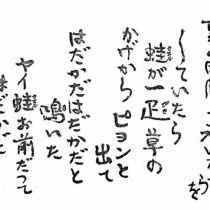 していたら
蛙が一疋草の
かげからピヨンと
出て
はだかだはだかだと
鳴いた
ヤイ蛙お前だって